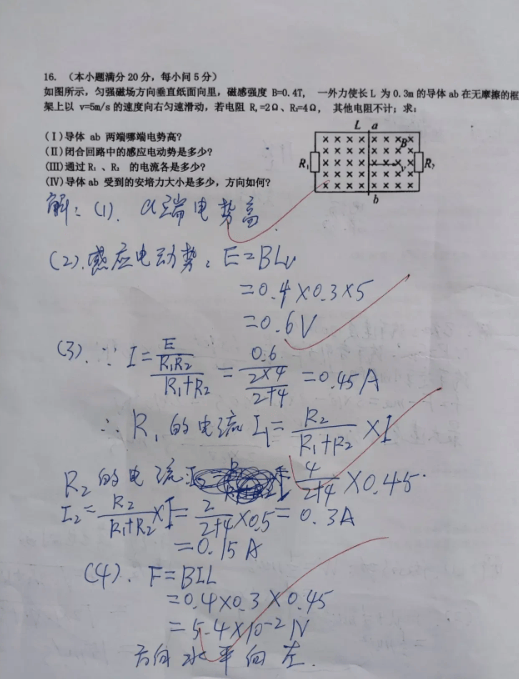 16. （本小题满分 20 分，每小问 5 分）
如图所示，匀强磁场方向垂直纸面向里，磁感强度 B=0.4T， 一外力使长 L 为 0.3m 的导体 ab 在无摩擦的框
架上以 v=5m/s 的速度向右匀速滑动，若电阻 R₁=2Ω、R₂=4Ω， 其他电阻不计；求：
(Ⅰ)导体 ab 两端哪端电势高？
(Ⅱ)闭合回路中的感应电动势是多少？
(Ⅲ)通过 R₁ 、R₂ 的电流各是多少？
(Ⅳ)导体 ab 受到的安培力大小是多少，方向如何？
L a
B
R₁ v R₂
b
解：(1). a端电势高
(2).感应电动势：E=BLv
=0.4×0.3×5
=0.6V
(3). ∵ I=E/(R₁R₂/(R₁+R₂))=0.6/(2×4/(2+4))=0.45A
∴ R₁的电流I₁=R₂/(R₁+R₂)×I
=4/(2+4)×0.45
=0.3A
R₂的电流:
I₂=R₂/(R₁+R₂)×I=2/(2+4)×0.5
=0.15A
(4). F=BIL
=0.4×0.3×0.45
=5.4×10⁻²N
方向水平向左.